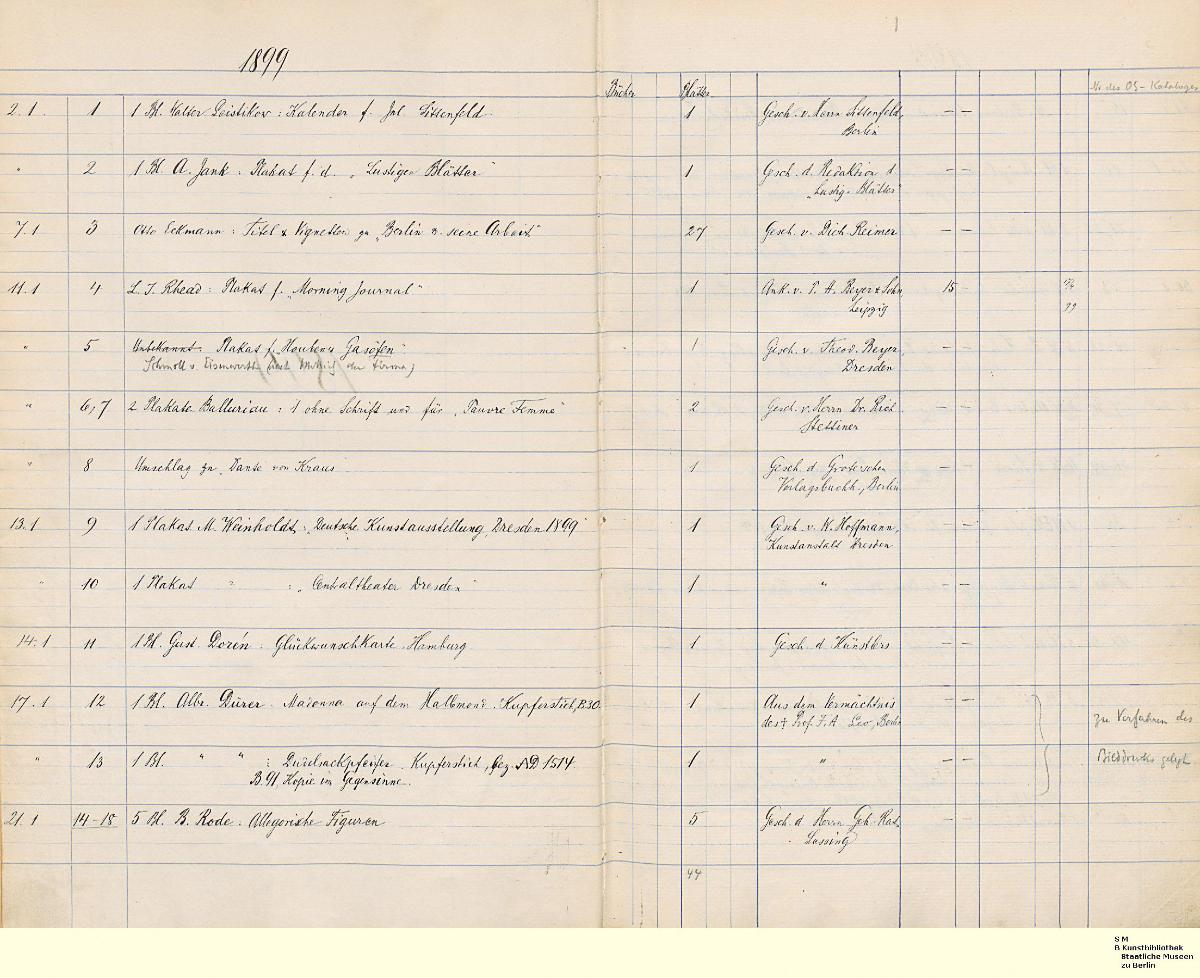 1899
Bücher Blätter Nr des OS-Kataloges
2.1. 1 1 Bl. Walter Leistikow : Kalender f. Jul. Sittenfeld. 1 Gesch. v. Herrn Sittenfeld, — —
Berlin
" 2 1 Bl. A. Jank : Plakat f. d. „Lustigen Blätter" 1 Gesch. d. Redaktion d. — —
„Lustig. Blätter"
7.1 3 Otto Eckmann : Titel & Vignetten zu „Berlin u. seine Arbeit" 27 Gesch. v. Dich. Reimer — —
11.1 4 L. J. Rhead : Plakat f. „Morning Journal" 1 Ank. v. T. A. Beyer & Sohn, 15 —
Leipzig 99
" 5 Unbekannt : Plakat f. Houbens Gasöfen" 1 Gesch. v. Theod. Beyer, — —
Schmoll v. Eisenwerth (nach der Firma) Dresden
" 6,7 2 Plakate Balluriau : 1 ohne Schrift und für „Pauvre Femme" 2 Gesch. v. Herrn Dr. Rich. — —
Stettiner
" 8 Umschlag zu „Dante von Kraus 1 Gesch. d. Grote'schen — —
Verlagsbuchh., Berlin
13.1 9 1 Plakat M. Weinholdt : „Deutsche Kunstausstellung, Dresden 1899" 1 Gesch. v. W. Hoffmann, — —
Kunstanstalt Dresden
" 10 1 Plakat " : „Centraltheater Dresden" 1 " — —
14.1 11 1 Bl. Gust. Dorén : Glückwunschkarte Hamburg 1 Gesch. d. Künstlers — —
17.1 12 1 Bl. Albr. Dürer. Madonna auf dem Halbmond. Kupferstich, B.30. 1 Aus dem Vermächtnis — —
des † Prof. F. A. Leo, Berlin zu Verfahren des
" 13 1 Bl. " " : Dudelsackpfeifer. Kupferstich, bez. AD 1514. 1 " — — Bilddrucks gelegt
B. 91, Kopie im Gegensinne.
21.1 14-18 5 Bl. B. Rode : Allegorische Figuren 5 Gesch. d. Herrn Geh. Rat — —
Lessing
44
S M
B Kunstbibliothek
Staatliche Museen
zu Berlin